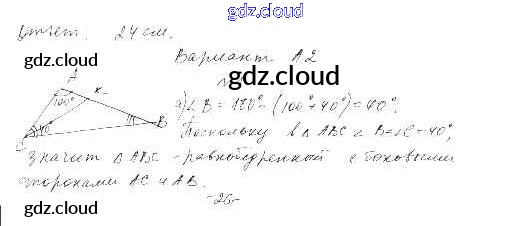 gdz.cloud
Ответ. 24 см.
gdz.cloud
Вариант А2
gdz.cloud
A K
100°
а) ∠B = 180° - (100° + 40°) = 40°.
40° B
Поскольку в ΔABC ∠B=∠C=40°,
C
значит ΔABC - равнобедренный с боковыми
сторонами AC и AB.
gdz.cloud gdz.cloud
-26-